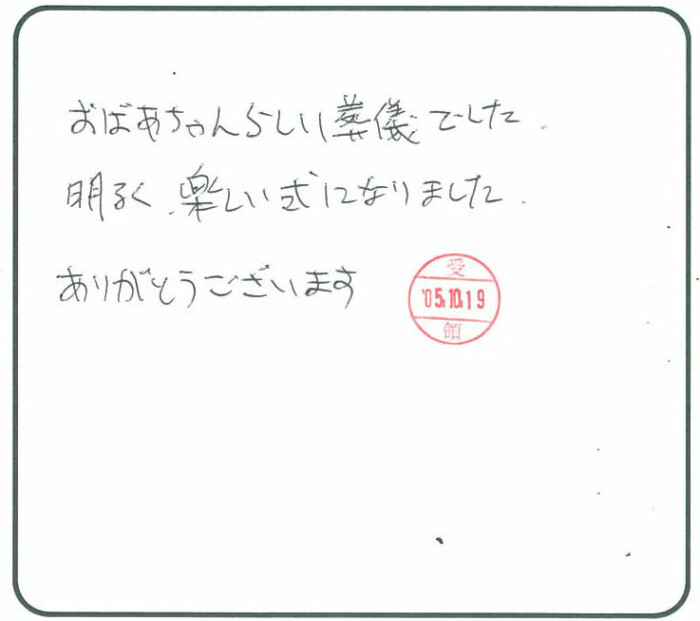 おばあちゃんらしい葬儀でした.
明るく.楽しい式になりました.
ありがとうございます
受
'05.10.19
領